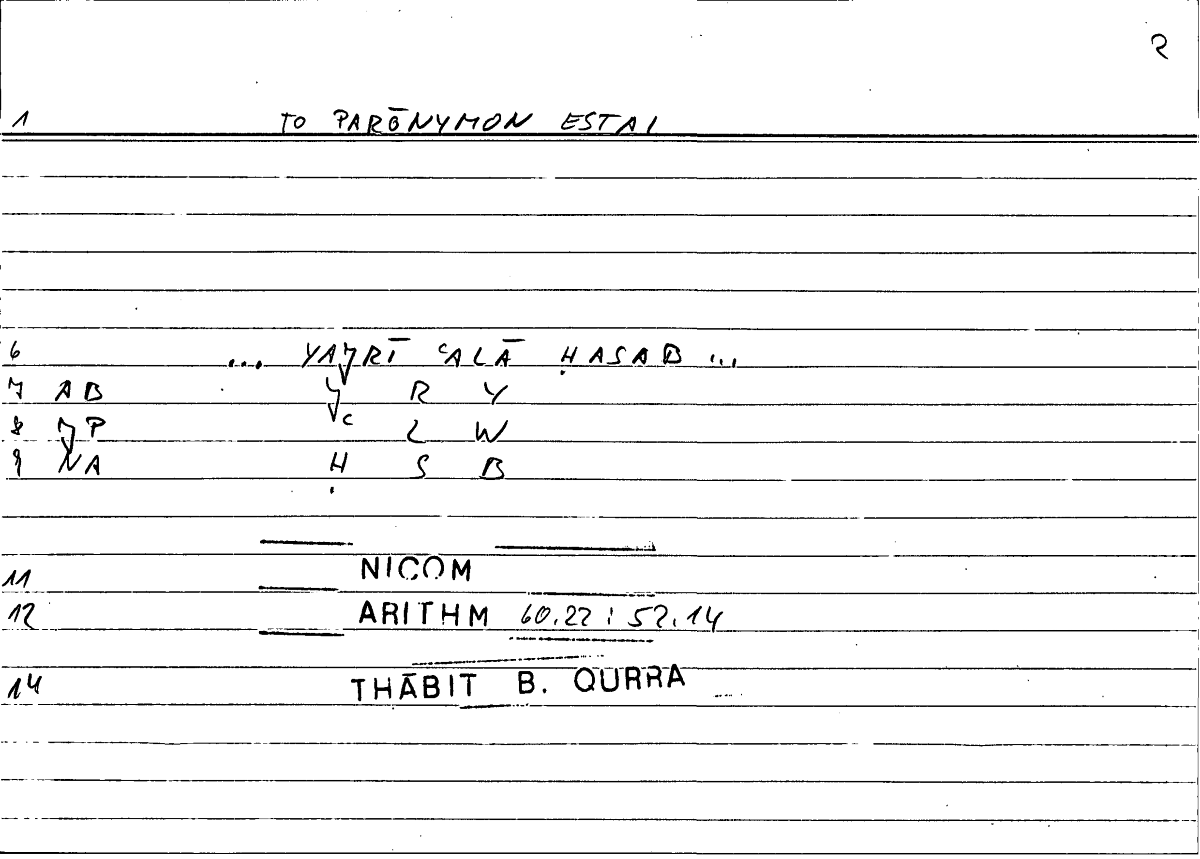 2
1 TO PARŌNYMON ESTAI
6 ... YAJ̌RĪ ʿALĀ ḤASAB ...
7 AB J̌ R Y
8 JP ʿ L W
9 NA Ḥ S B
11 NICOM
12 ARITHM 60.22 : 52.14
14 THĀBIT B. QURRA